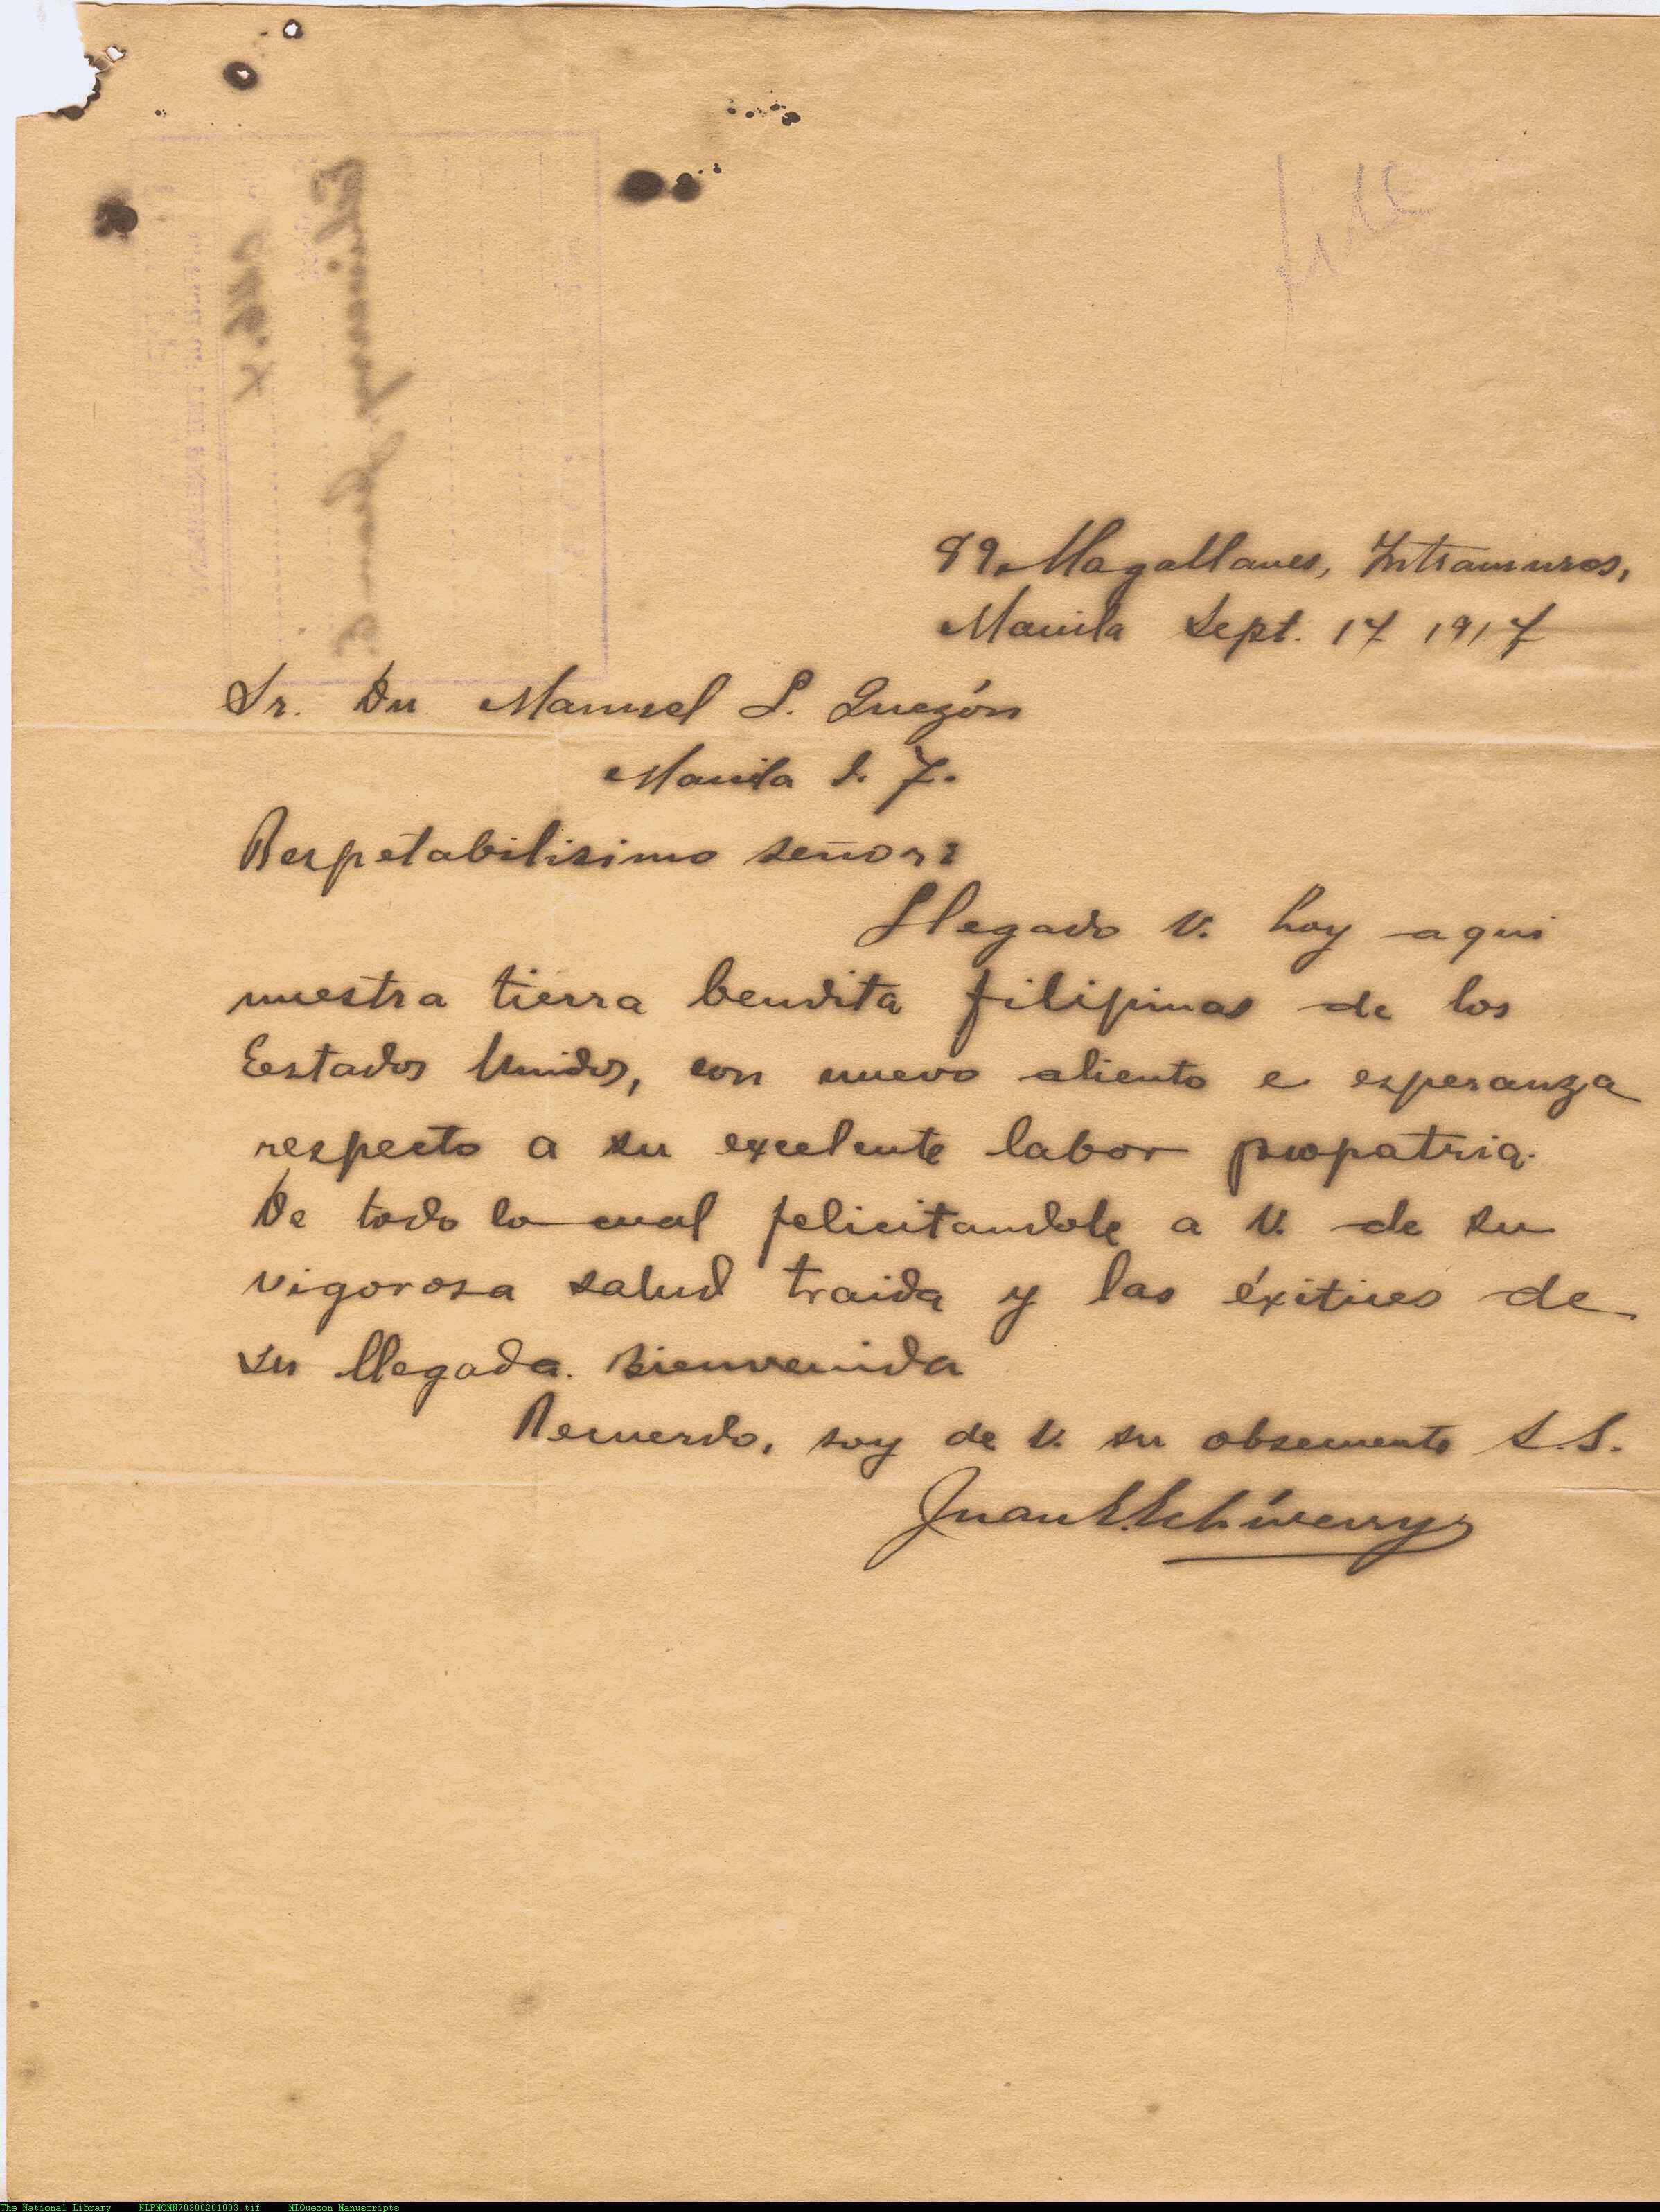 file
89 Magallanes, Intramuros,
Manila Sept. 17 1917
Sr. Dn Manuel L. Quezón
Manila I. F.
Respetabilisimo señor:
Llegado V. hoy aqui
nuestra tierra bendita filipinas de los
Eestados Unidos, con nuevo aliento e esperanza
respecto a su excelente labor propatria.
De todo lo cual felicitandole a V. de su
vigorosa salud traida y las éxitives de
su llegada. Bienvenida
Recuerdo, soy de V. su obsecuente S.S.
Juan
The National Library NLPMQMN70300201003.tif MLQuezon Manuscripts